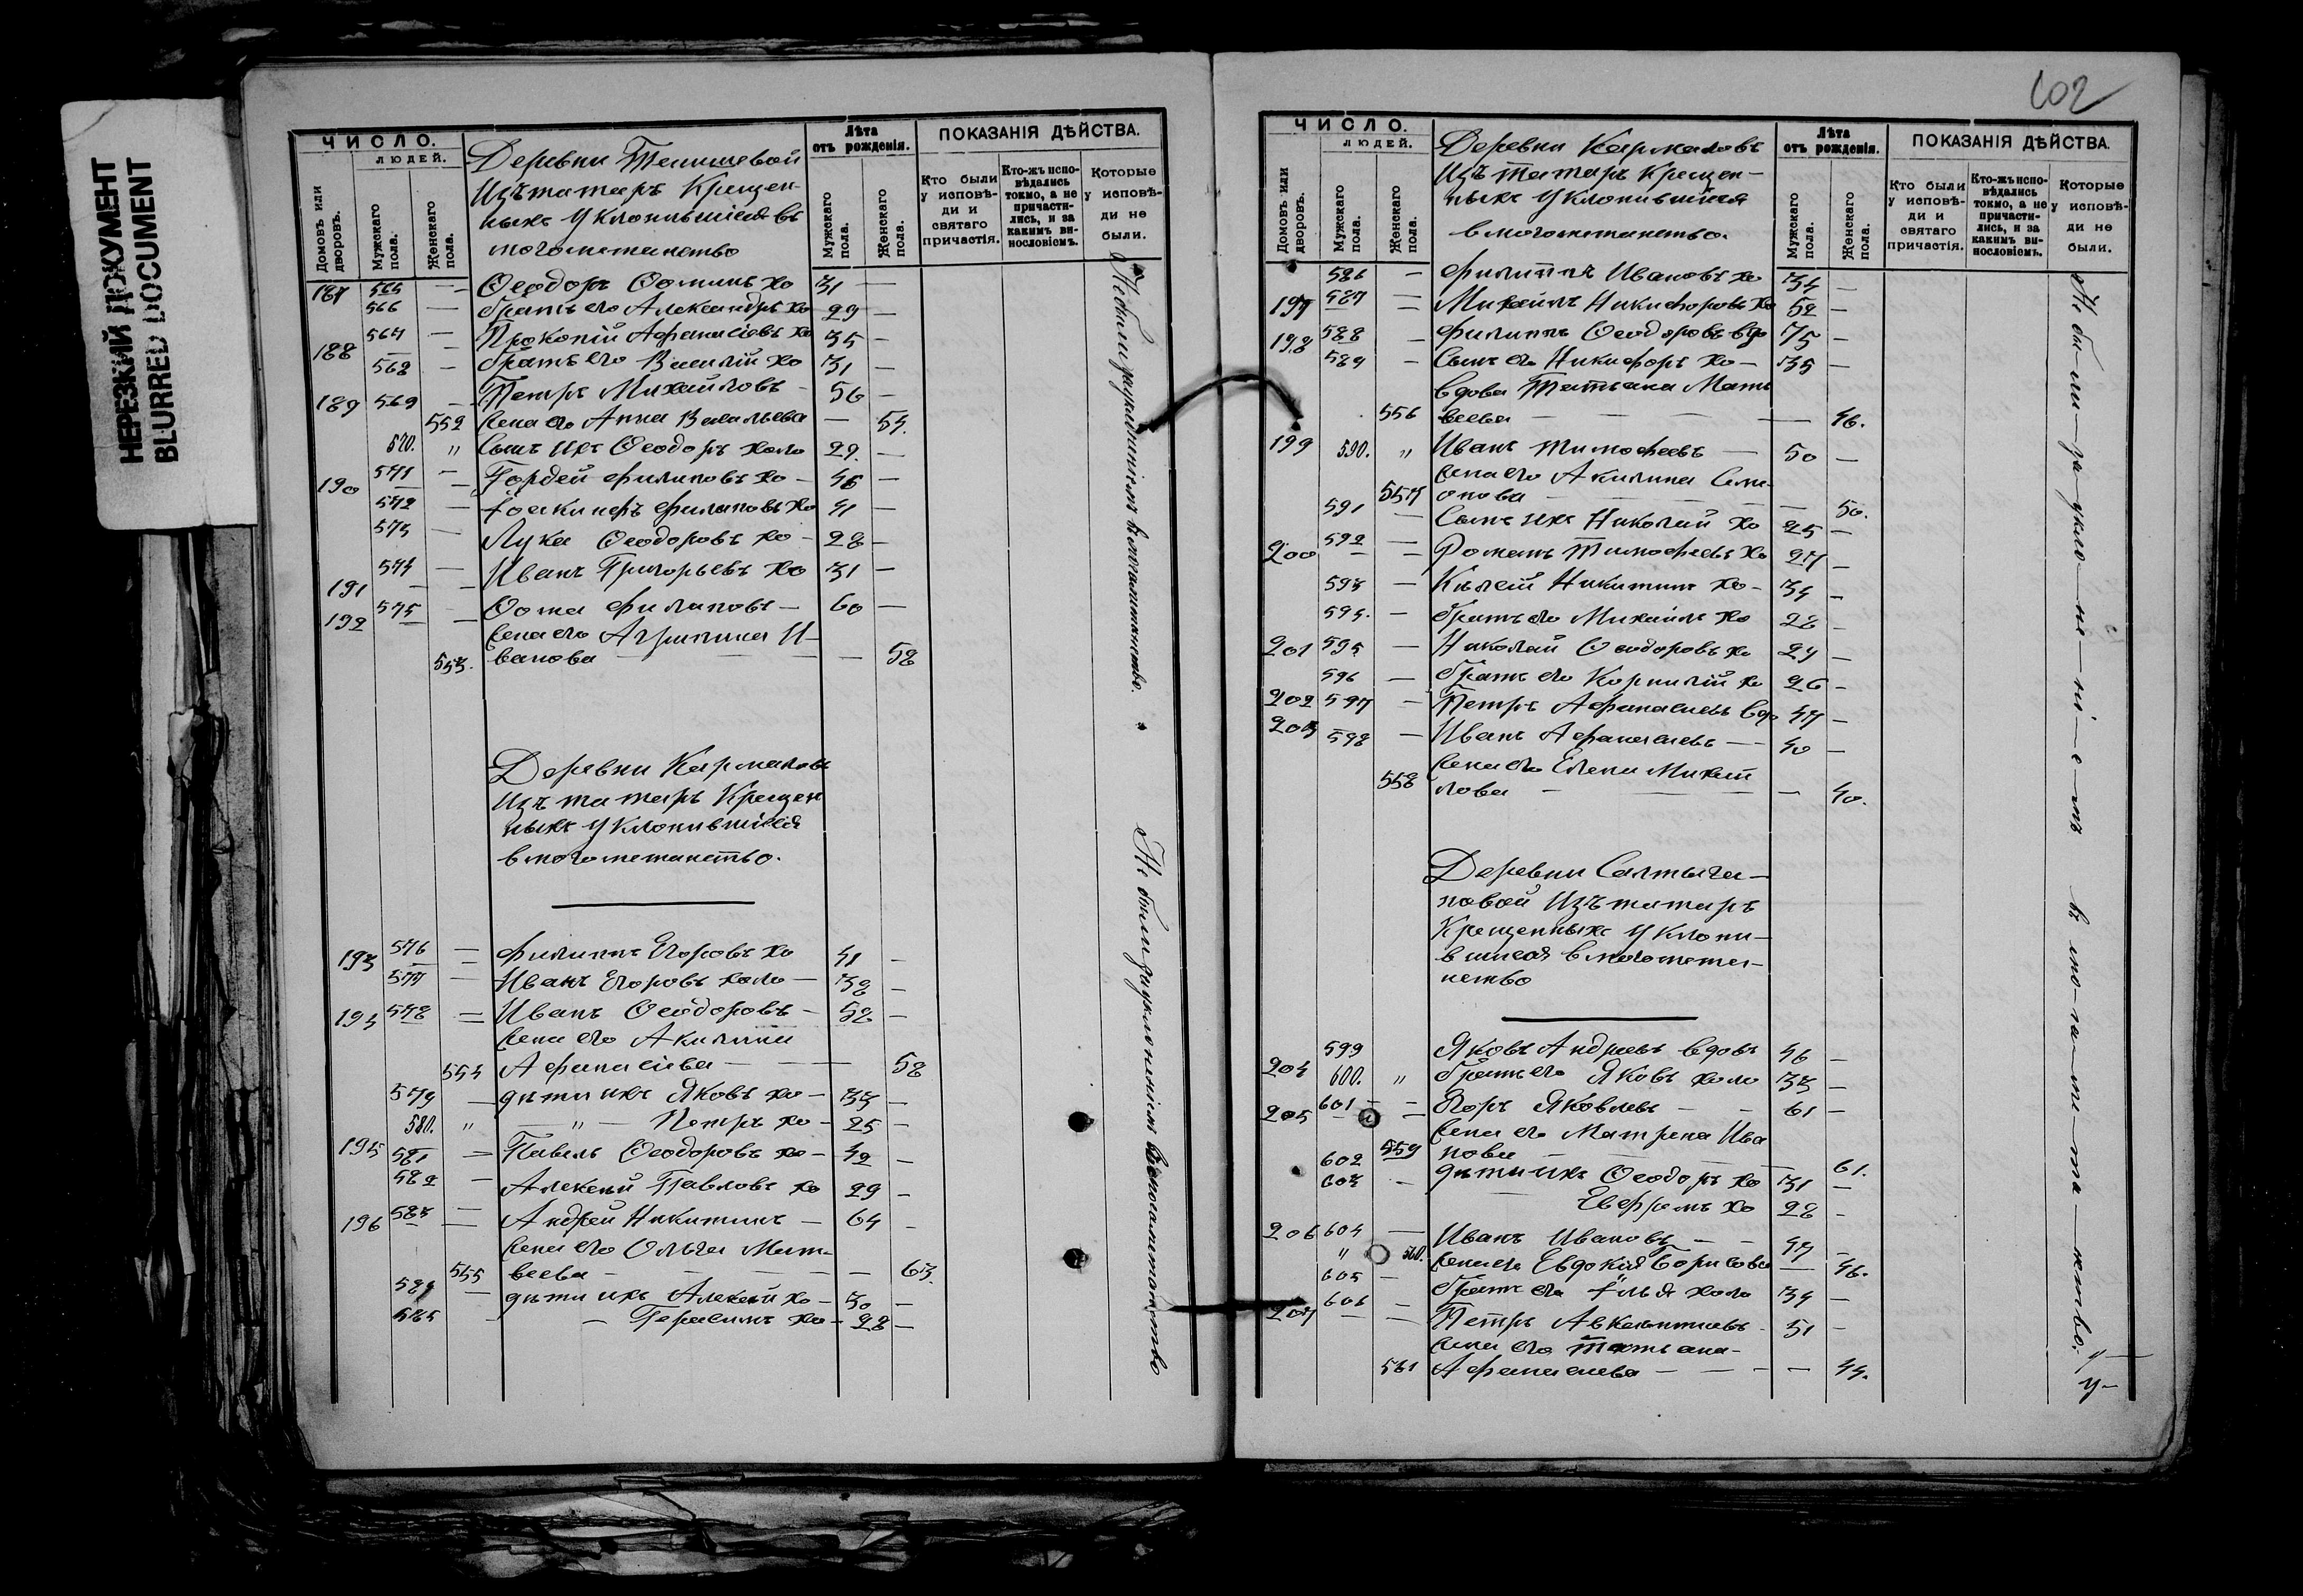 НЕРЕЗКИЙ ДОКУМЕНТ
BLURRED DOCUMENT
ЧИСЛО.
людей.
Домовъ или дворовъ.
Мужскаго пола.
Женскаго пола.
Деревни
Изъ татаръ Крещен-
ныхъ Уклонившіеся въ
могометанство
Лѣта
отъ рожденія.
Мужскаго пола.
Женскаго пола.
ПОКАЗАНІЯ ДѢЙСТВА.
Кто были у исповѣди и святаго причастія.
Кто-жъ исповѣдались токмо, а не причастились, и за какимъ винословіемъ.
Которые у исповѣди не были.
187 565 — Ѳеодоръ Ѳоминъ хо 31 —
566 — братъ его Александръ хо 29 —
567 — Прокопій Афанасіевъ хо 35 —
188 568 — братъ его Василій хо 31 —
189 569 — Петръ Михайловъ — 56 —
552 жена его Анна Васильева — 54.
570. „ Сынъ ихъ Ѳеодоръ холо 29. —
190 571 — Гордей Филиповъ хо — 46 —
572 — Филиповъ хо 41 —
573 — Лука Ѳеодоровъ хо — 28 —
191 574 — Иванъ Григорьевъ хо 31 —
192 575 — Ѳома Филиповъ — 60 —
жена его Агрипина И-
553. ванова — — 58
Деревни Кармаловъ
Изъ татаръ Крещен
ныхъ Уклонившіеся
въ могометанство.
193 576 — Филиппъ Егоровъ хо 41 —
577 — Иванъ Егоровъ холо — 38 —
194 578 — Иванъ Ѳеодоровъ — 58 —
жена его Акилина
554 Афанасіева — — 58
579 — дѣти ихъ Яковъ хо — 33 —
580. „ — „ — Петръ хо — 25 —
195 581 — Павелъ Ѳеодоровъ хо — 42 —
582 — Алексѣй Павловъ хо 29 —
196 583 — Андрей Никитинъ — 64 —
жена его Ольга Мат-
555 веева — — 63.
584 — дѣти ихъ Алексѣй хо — 30 —
585 — — Герасимъ хо — 28 —
Не были за уклоненіемъ въ могометанство.
Не были за уклоненіемъ въ могометанство
102
ЧИСЛО.
людей.
Домовъ или дворовъ.
Мужскаго пола.
Женскаго пола.
Деревни Кармаловъ
Изъ Татаръ Крещен-
ныхъ Уклонившіеся
въ могометанство.
Лѣта
отъ рожденія.
Мужскаго пола.
Женскаго пола.
ПОКАЗАНІЯ ДѢЙСТВА.
Кто были у исповѣди и святаго причастія.
Кто-жъ исповѣдались токмо, а не причастились, и за какимъ винословіемъ.
Которые у исповѣди не были.
586 — Филиппъ Ивановъ хо 34 —
197 587 — Михаилъ Никифоровъ хо 52 —
198 588 — Филиппъ Ѳеодоровъ вдо 75 —
589 — Сынъ его Никифоръ хо — 35 —
вдова Татьяна Мат
556 веева — — 46.
199 590. „ Иванъ Тимофеевъ — 50 —
жена его Акилина Сим-
557 онова — — 50.
591 — Сынъ ихъ Николай хо 25 —
200 592 — Романъ Тимофеевъ хо 27 —
593 — Никитинъ хо — 34 —
594. — братъ его Михаилъ хо 28 —
201 595 — Николай Ѳеодоровъ хо 29 —
596 — братъ его Корнилій хо 26 —
202 597 — Петръ Афанасьевъ вдо 47 —
203 598 — Иванъ Афанасьевъ — 40 —
жена его Елена Михай
558 лова — — 40.
Деревни Салтыга-
новой Изъ татаръ
Крещенныхъ Уклони-
вшиеся въ могомета-
нство
599 Яковъ Андреевъ вдовъ 46 —
204 600. „ братъ его Яковъ холо 33 —
205 601 — Егоръ Яковлевъ — 61 —
жена его Матрена Ива
559 нова — — 61.
602 дѣти ихъ Ѳеодоръ хо 31 —
603 — Ефремъ хо 28 —
206 604 — Иванъ Ивановъ — 47 —
„ 560. жена его Евдокія Борисова — 46.
605 — братъ его Илья холо 34 —
207 606 — Петръ Авксентіевъ 51 —
жена его Татьяна-
561 Афанасиева — — 44.
Не были за уклоненіемъ въ могометанство.